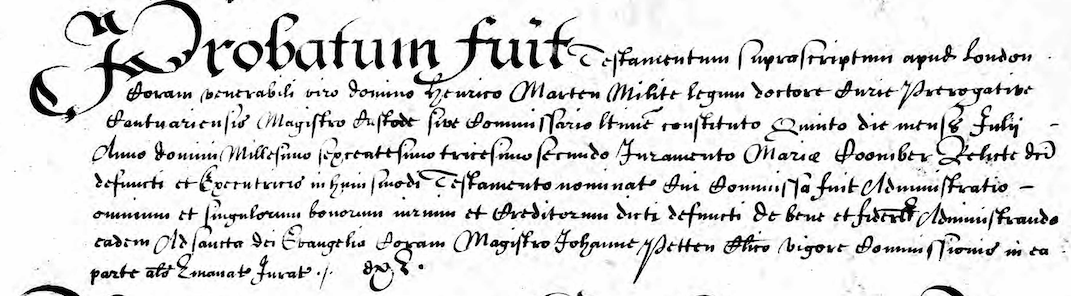 Probatum fuit Testamentum suprascriptum apud London
Coram venerabili viro domino Henrico Marten Milite legum doctore Curie Prerogative
Cantuariensis Magistro Custode sive Commissario ltime constituto Quinto die mens Julij
Anno domini Millesimo sexcentesimo tricesimo secundo Juramento Mariæ Coomber Relicte dci
defuncti et Executricis in huiusmodi Testamento nominat Cui Commissa fuit Administratio
omnium et singulorum bonorum iurium et Creditorum dicti defuncti De bene et fidelr Administrando
eadem Ad sancta dei Evangelia Coram Magistro Johanne Petten Clico vigore Commissionis in ea
parte als Emanat Jurat